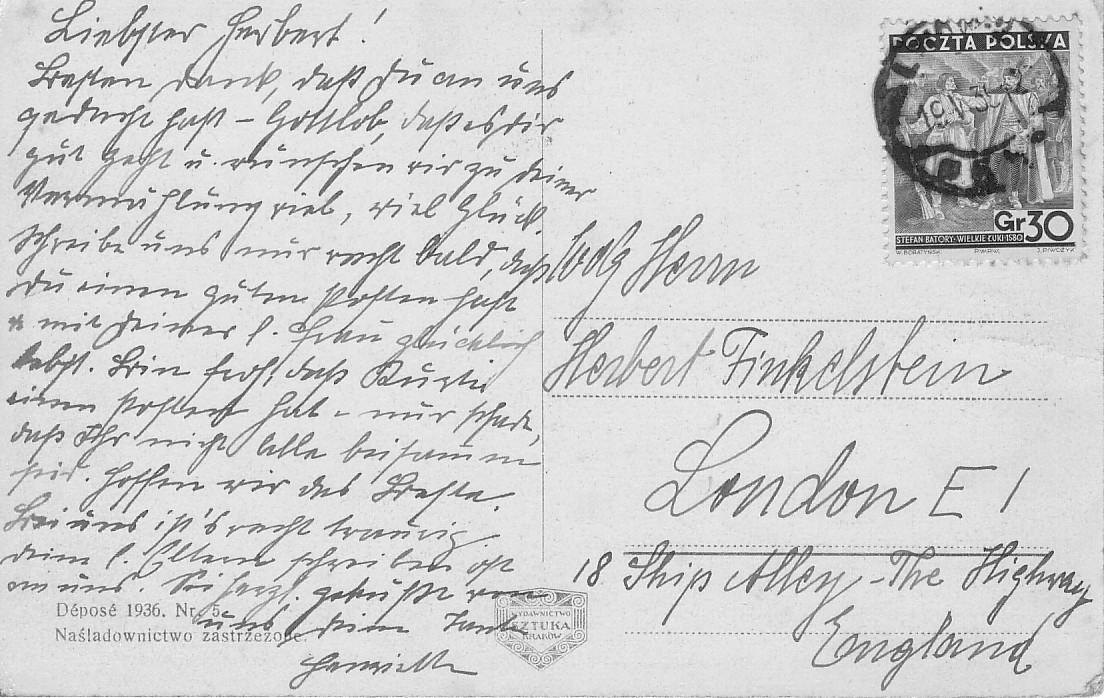 Liebster Herbert!
Besten Dank, daß Du an uns
gedacht hast – Gottlob, daß es dir
gut geht u. wünschen wir zu deiner
Vermählung viel, viel Glück.
Schreibe uns nur recht bald, daß
Du einen guten Posten hast
mit deiner l. Frau glücklich
lebst. Bin froh, daß Kurti
einen Posten hat – nur schade,
daß Ihr nicht alle beisammen
seid. Hoffen wir das Beste.
Bei uns ist's recht traurig
deine l. Eltern schreiben oft
an uns. Sei herzl. geküßt von
uns, deine Tante
Henriette
Déposé 1936. Nr. 5.
Naśladownictwo zastrzeżone.
WYDAWNICTWO
SZTUKA
KRAKÓW
POCZTA POLSKA
Gr 30
STEFAN BATORY·WIELKIE ŁUKI·1580
W. BORATYŃSKI P.W.P.W. J. PIWCZYK
Herrn
Herbert Finkelstein
London E 1
18 Ship Alley – The Highway
England